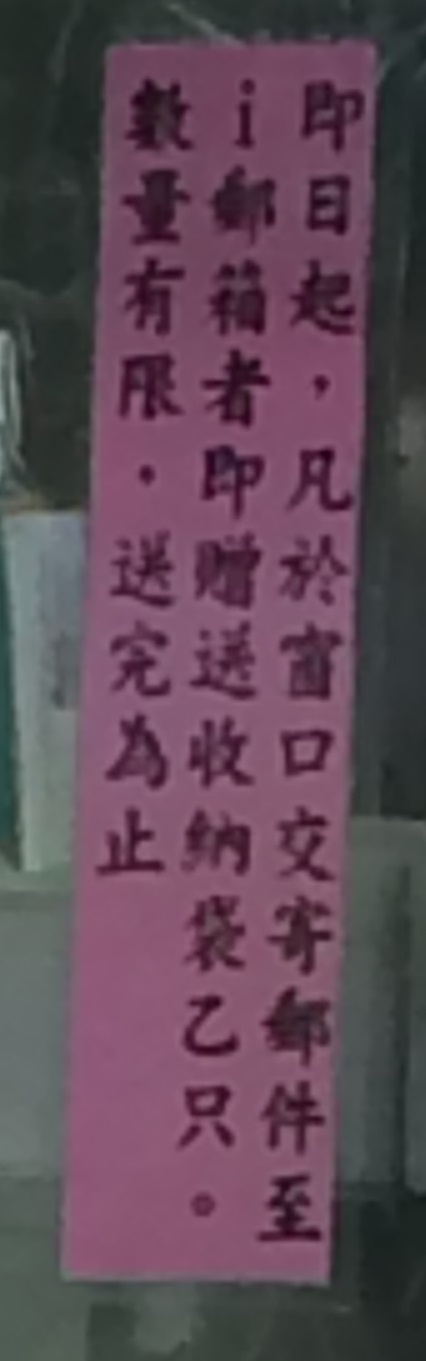 即日起,凡於窗口交寄郵件至
i郵箱者即贈送收納袋乙只。
數量有限.送完為止